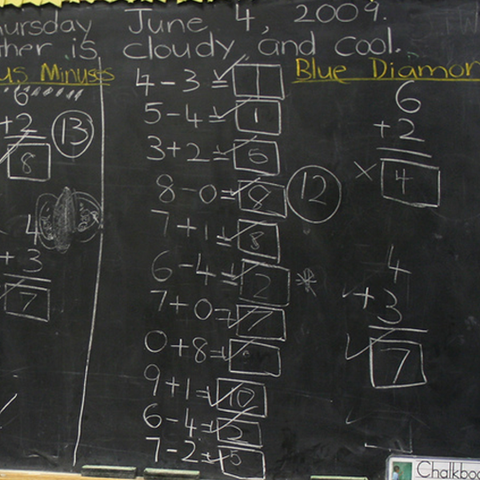 June 4, 2009.
is cloudy and cool.
Minuses
6
+2
8
13
4
+3
7
4-3=1
5-4=1
3+2=5
8-0=8
12
7+1=8
6-4=2 *
7+0=7
0+8=
9+1=10
6-4=2
7-2=5
Blue
6
+2
× 4
4
+3
7